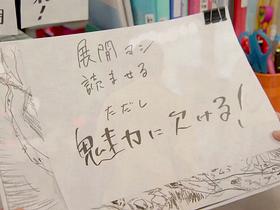 れ!
展開マシ
読ませる
ただし
魅力に欠ける!